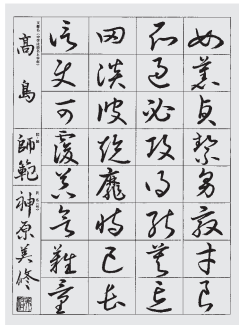 女慕貞絜男效才良
知過必改得能莫忘
罔談彼短靡恃己長
信使可覆器欲難量
高島
師範
神原美修